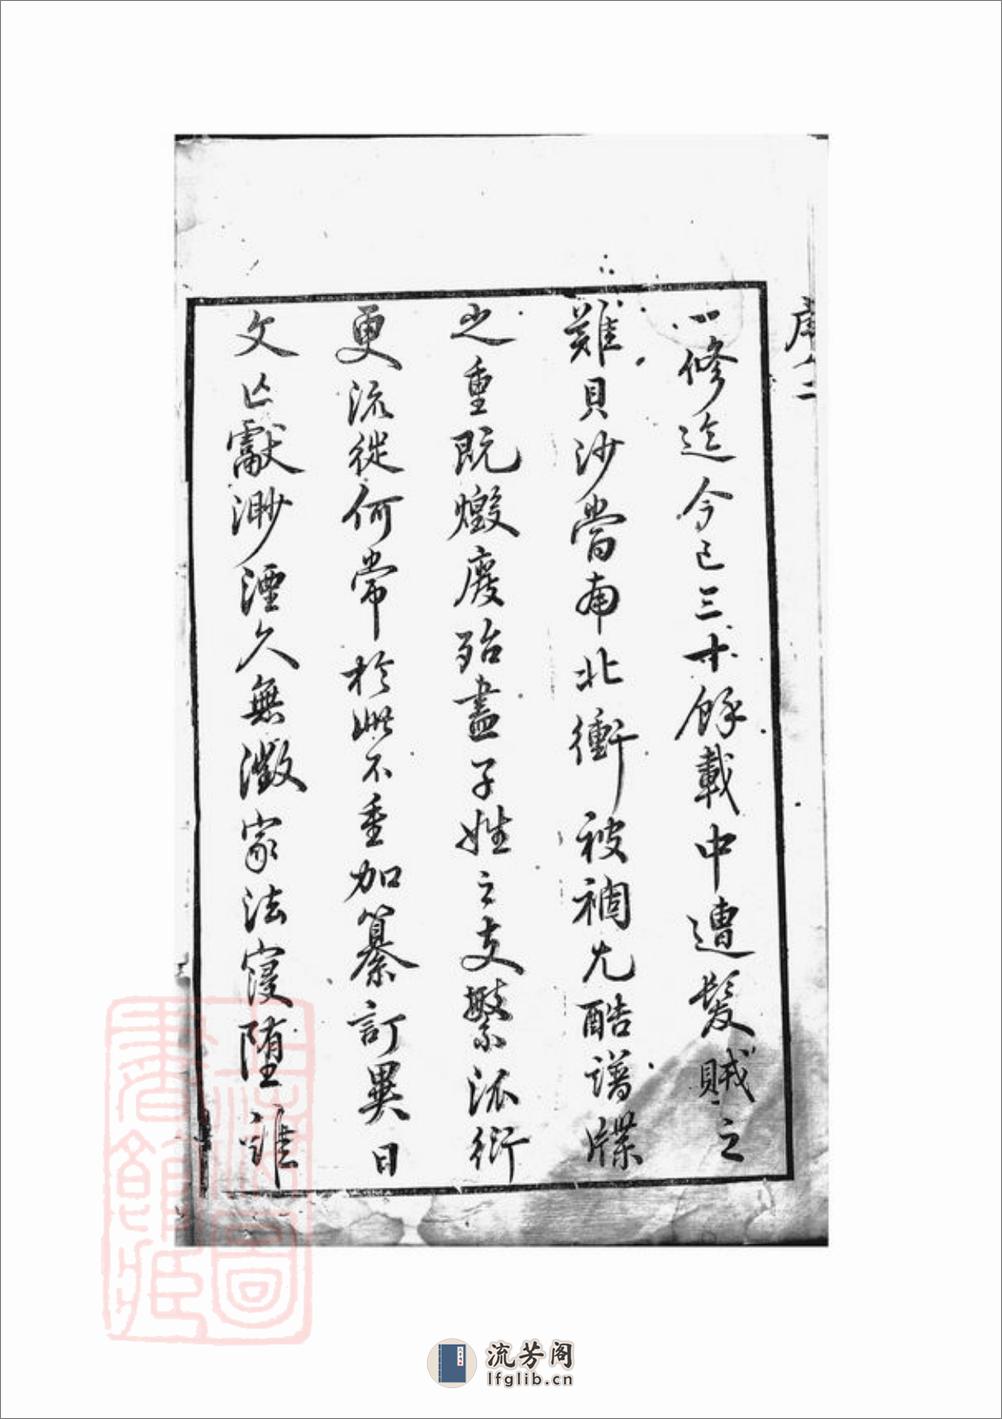 序 二
修迄今已三十餘載中遭髮賊之
難貝沙當南北衝被禍尤酷譜牒
之重既燬廢殆盡子姓之支繁派衍
更流徙何常於此不重加纂訂異日
文亡獻渺湮久無徵家法寖墮誰
上海圖書館藏
流芳阁
lfglib.cn